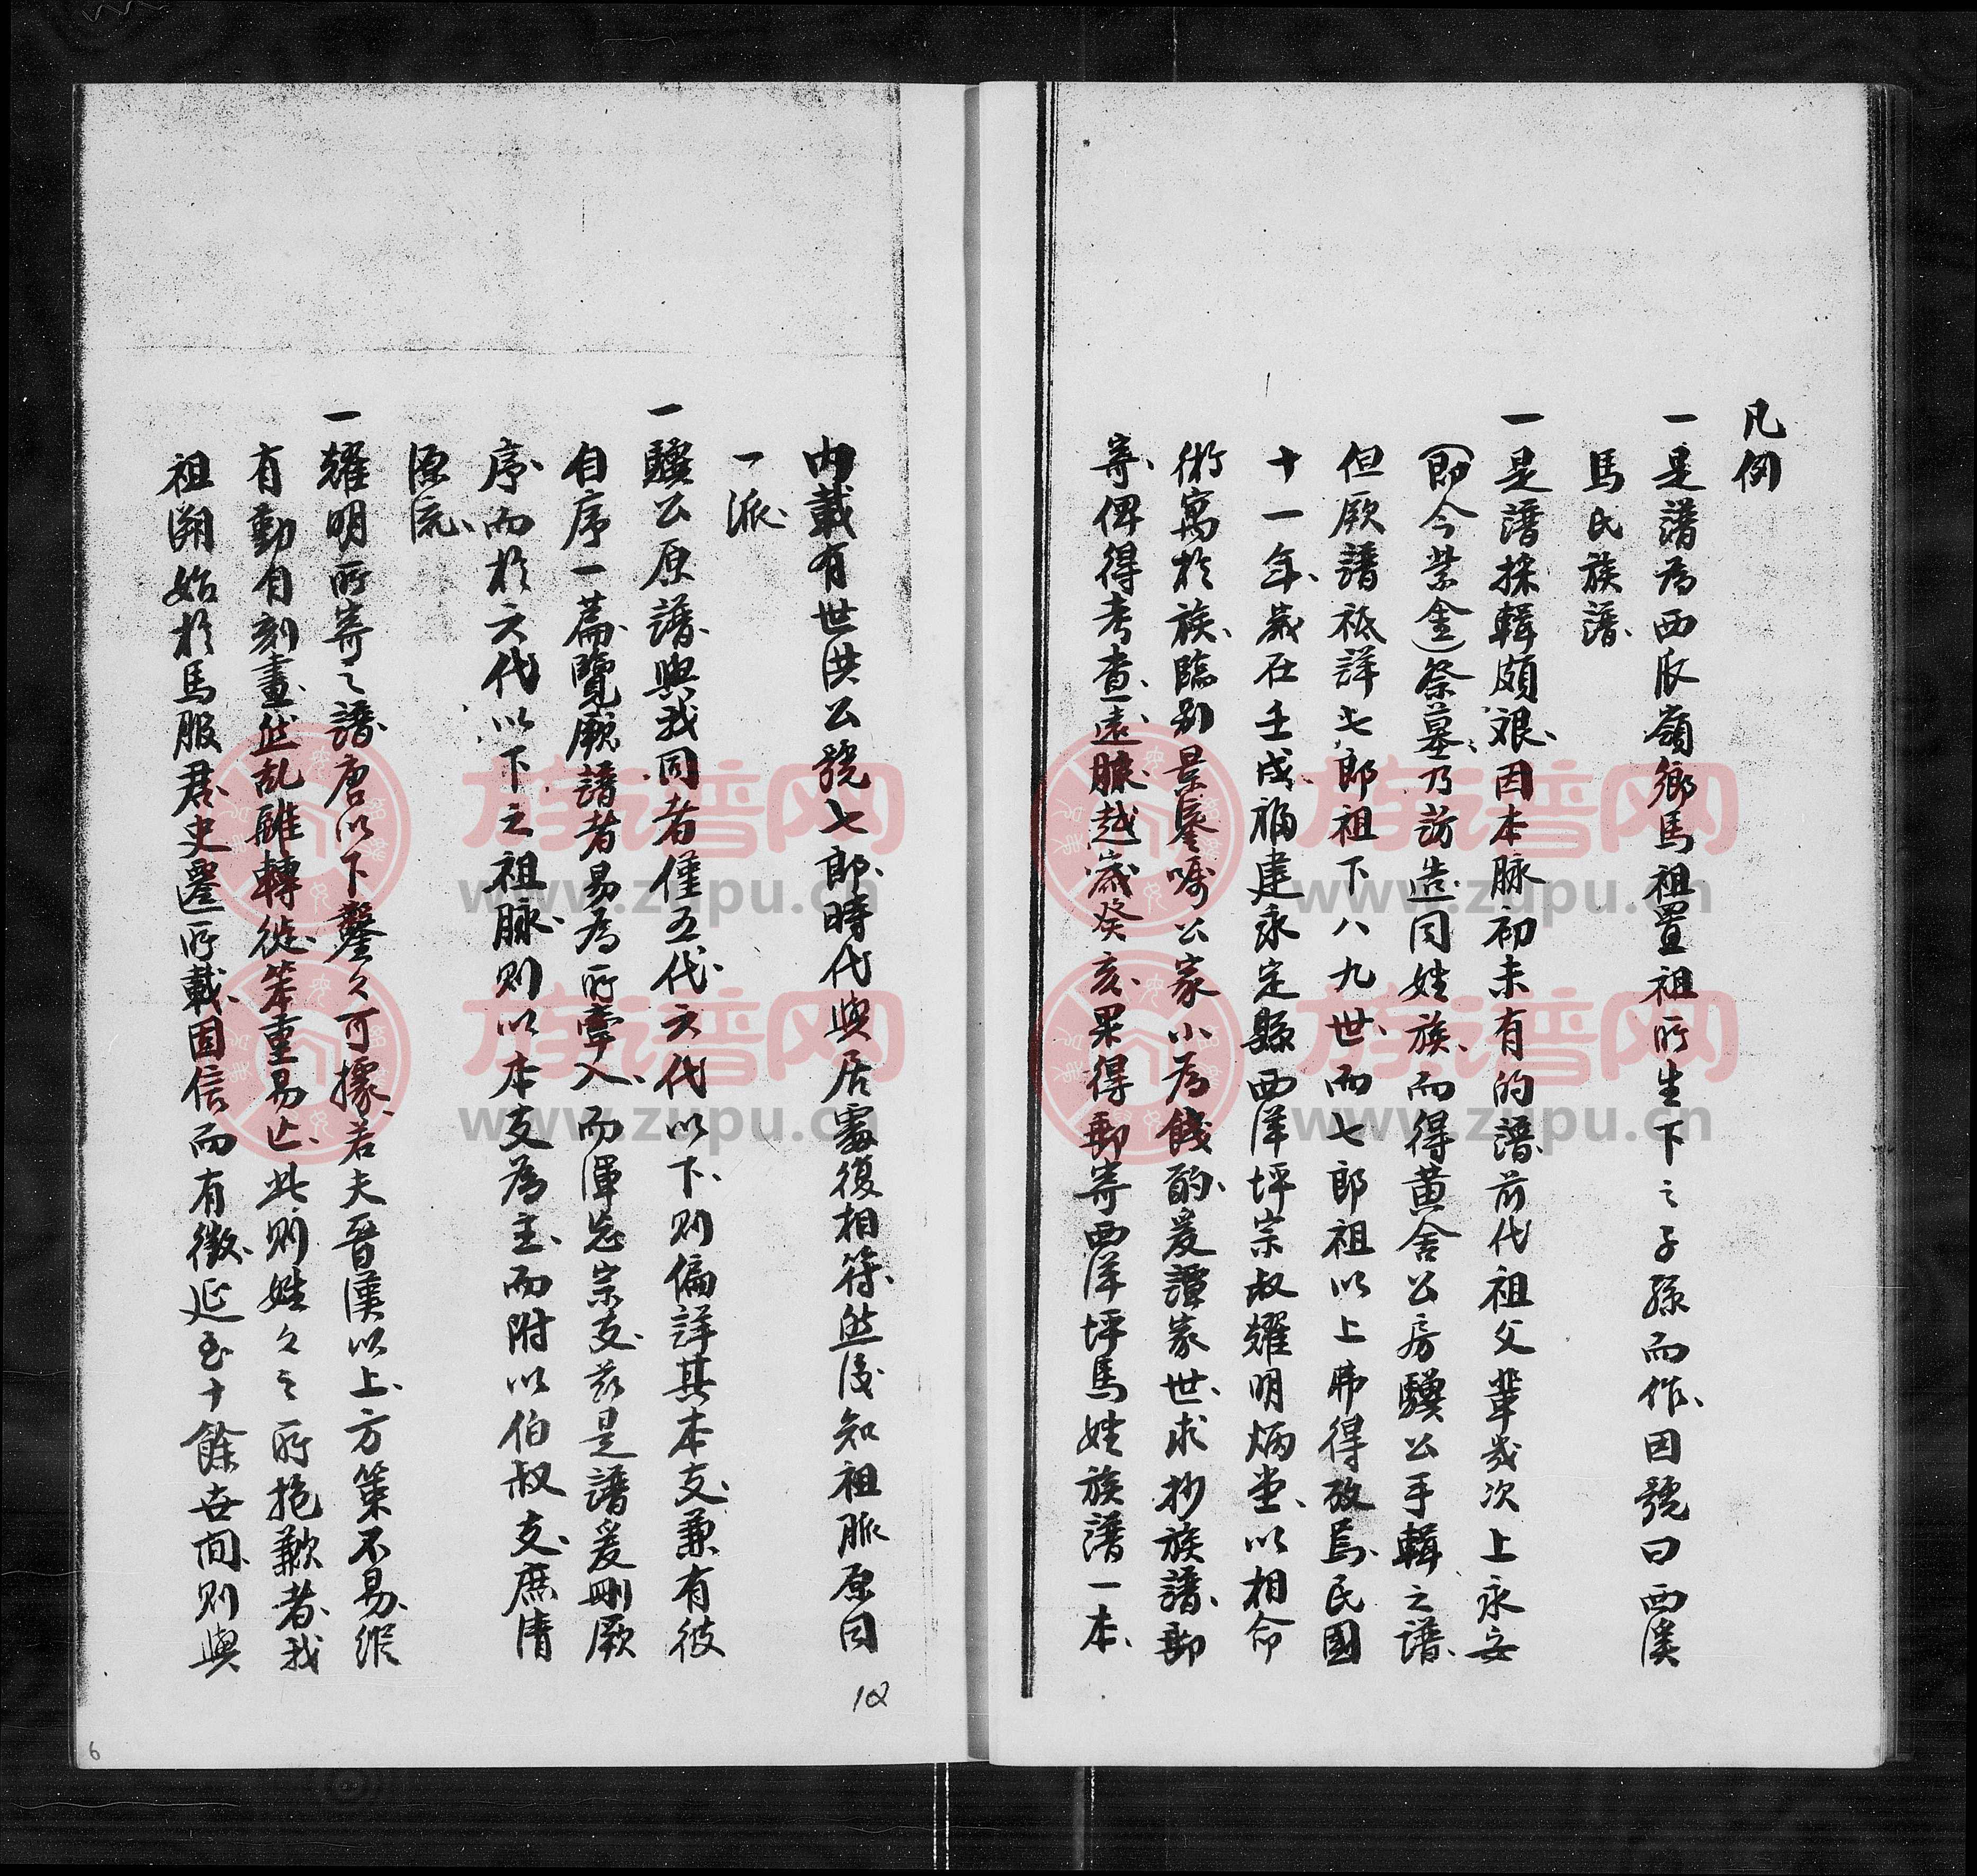 凡例
一是譜為西辰嶺鄉馬祖置祖所生下之子孫而作、因號曰西溪
馬氏族譜、
一是譜採輯頗艰、因本脉初未有的譜、前代祖父輩歲次上永安
(即今紫金)祭墓、乃訪造同姓族、而得黃舍公房驥公手輯之譜、
但厥譜祗詳七郎祖下八九世、而七郎祖以上弗得致焉、民國
十一年、歲在壬戌福建永定縣西洋坪宗叔耀明炳堂、以相命
術寓於族、臨別景鋆囑公家小為餞酌、爰譚家世、求抄族譜、郵
寄、俾得考查遠脉、越歲癸亥、果得郵寄西洋坪馬姓族譜一本、
內載有世洪公號七郎、時代與居處復相符、然後知祖脈原同
一派、
一驥公原譜、與我同者僅五代、六代以下、則偏詳其本支、兼有彼
自序一篇、覽厥譜者易為所牽入、而渾忘宗支、茲是譜爰刪厥
序、而於六代以下之祖脉、則以本支為主、而附以伯叔支、庶清
源流、
一耀明所寄之譜、唐以下鑿久可據、若夫晉漢以上、方策不易、縱
有勤自刻畫、然乱離轉徙、笨重易亡、此則姓久之所抱歉者、我
祖溯始於馬服君、史遷所載、固信而有徵、延至十餘世間、則與
12
6
族谱网
www.zupu.cn
族谱网
www.zupu.cn
族谱网
www.zupu.cn
族谱网
www.zupu.cn